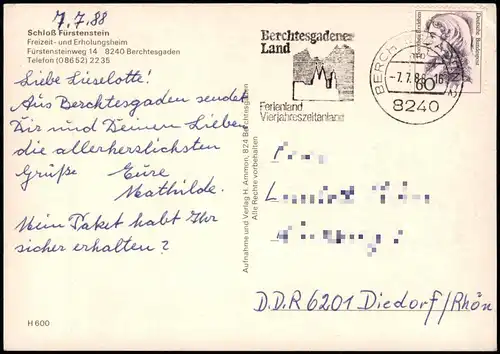 7.7.88
Schloß Fürstenstein
Freizeit- und Erholungsheim
Fürstensteinweg 14 8240 Berchtesgaden
Telefon (08652) 2235
Liebe Lieselotte!
Aus Berchtesgaden sendet
Dir und Deinen Lieben
die allerherzlichsten
Grüße Eure
Mathilde.
Mein Paket habt Ihr
sicher erhalten?
H 600
Aufnahme und Verlag H. Ammon, 824 Berchtesgaden
Alle Rechte vorbehalten
Berchtesgadener
Land
Ferienland
Vierjahreszeitenland
-7.7.88-16
8240
Deutsche Bundespost
60
D.D.R 6201 Diedorf/Rhön